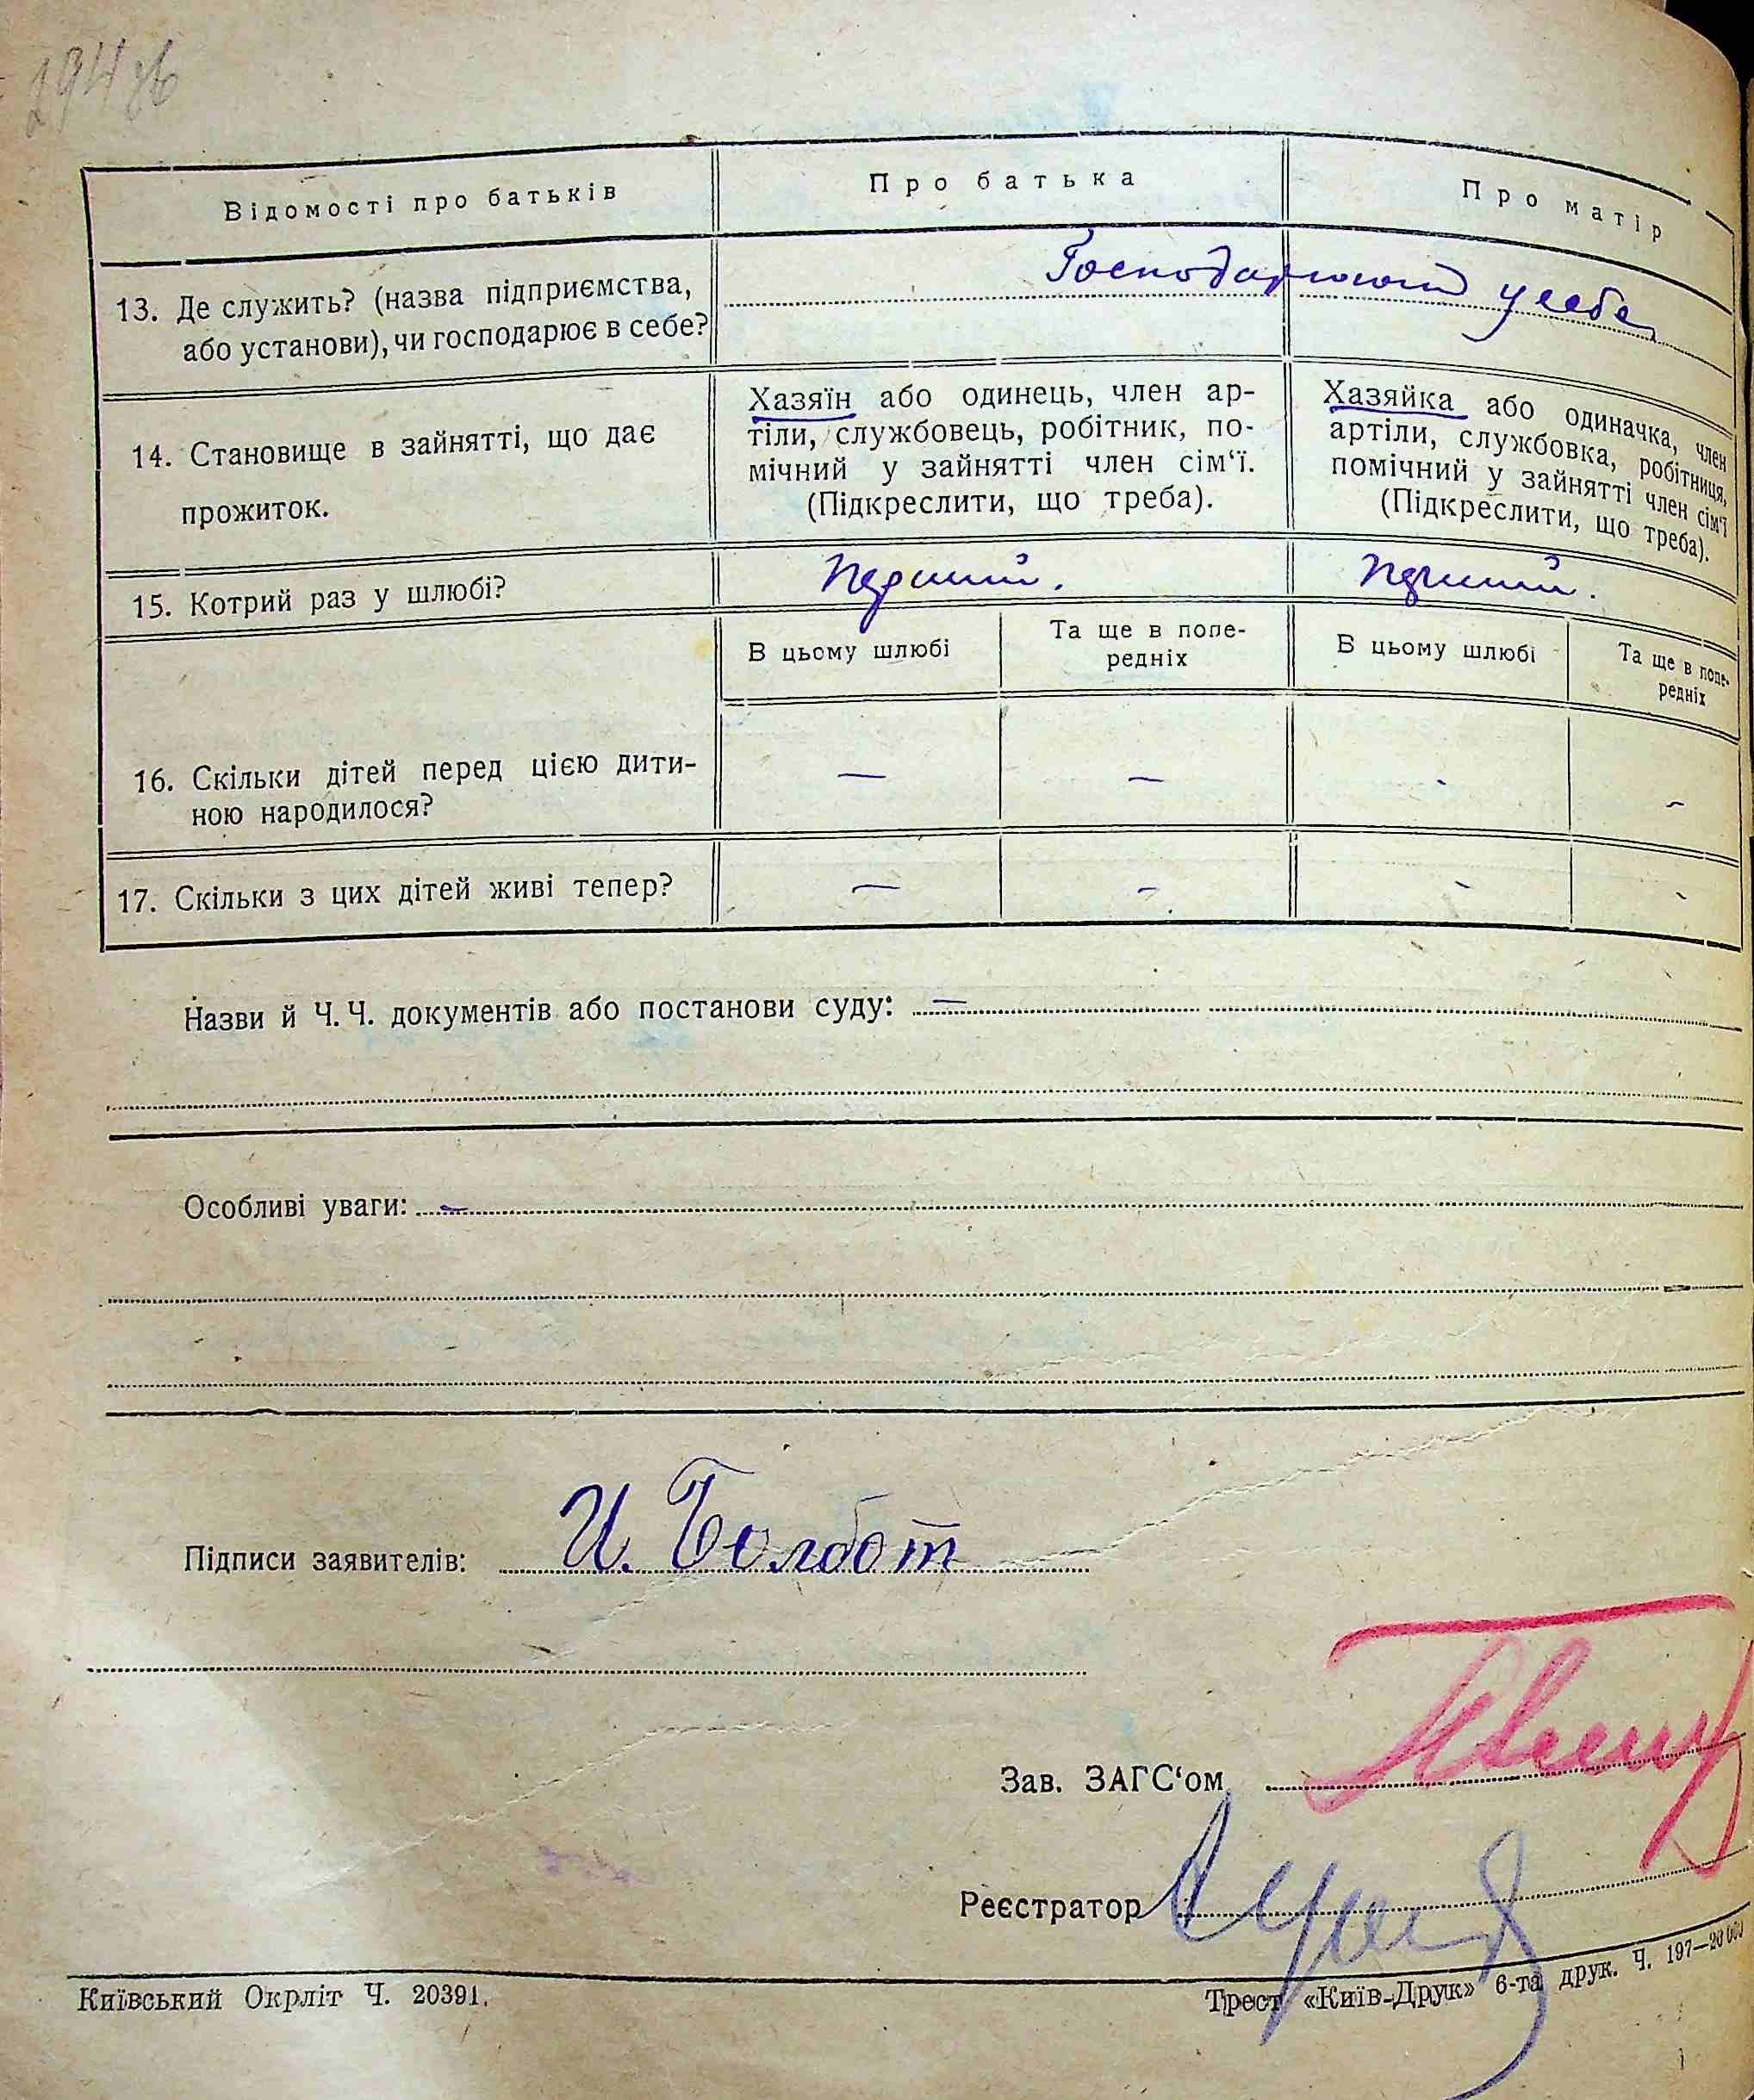 294 зв
Відомості про батьків
Про батька
Про матір
13. Де служить? (назва підприємства,
або установи), чи господарює в себе?
Господарюют у себе
14. Становище в зайнятті, що дає
прожиток.
Хазяїн або одинець, член ар-
тіли, службовець, робітник, по-
мічний у зайнятті член сім'ї.
(Підкреслити, що треба).
Хазяйка або одиначка, член
артіли, службовка, робітниця,
помічний у зайнятті член сім'ї
(Підкреслити, що треба).
15. Котрий раз у шлюбі?
Перший.
Перший.
В цьому шлюбі
Та ще в попе-
редніх
В цьому шлюбі
Та ще в попе-
редніх
16. Скільки дітей перед цією дити-
ною народилося?
— — - -
17. Скільки з цих дітей живі тепер?
— - - -
Назви й Ч.Ч. документів або постанови суду: —
Особливі уваги: —
Підписи заявителів: И. Болбот
Зав. ЗАГС'ом
Реєстратор
Київський Окрліт Ч. 20391.
Трест «Київ-Друк» 6-та друк. Ч. 197—20 000